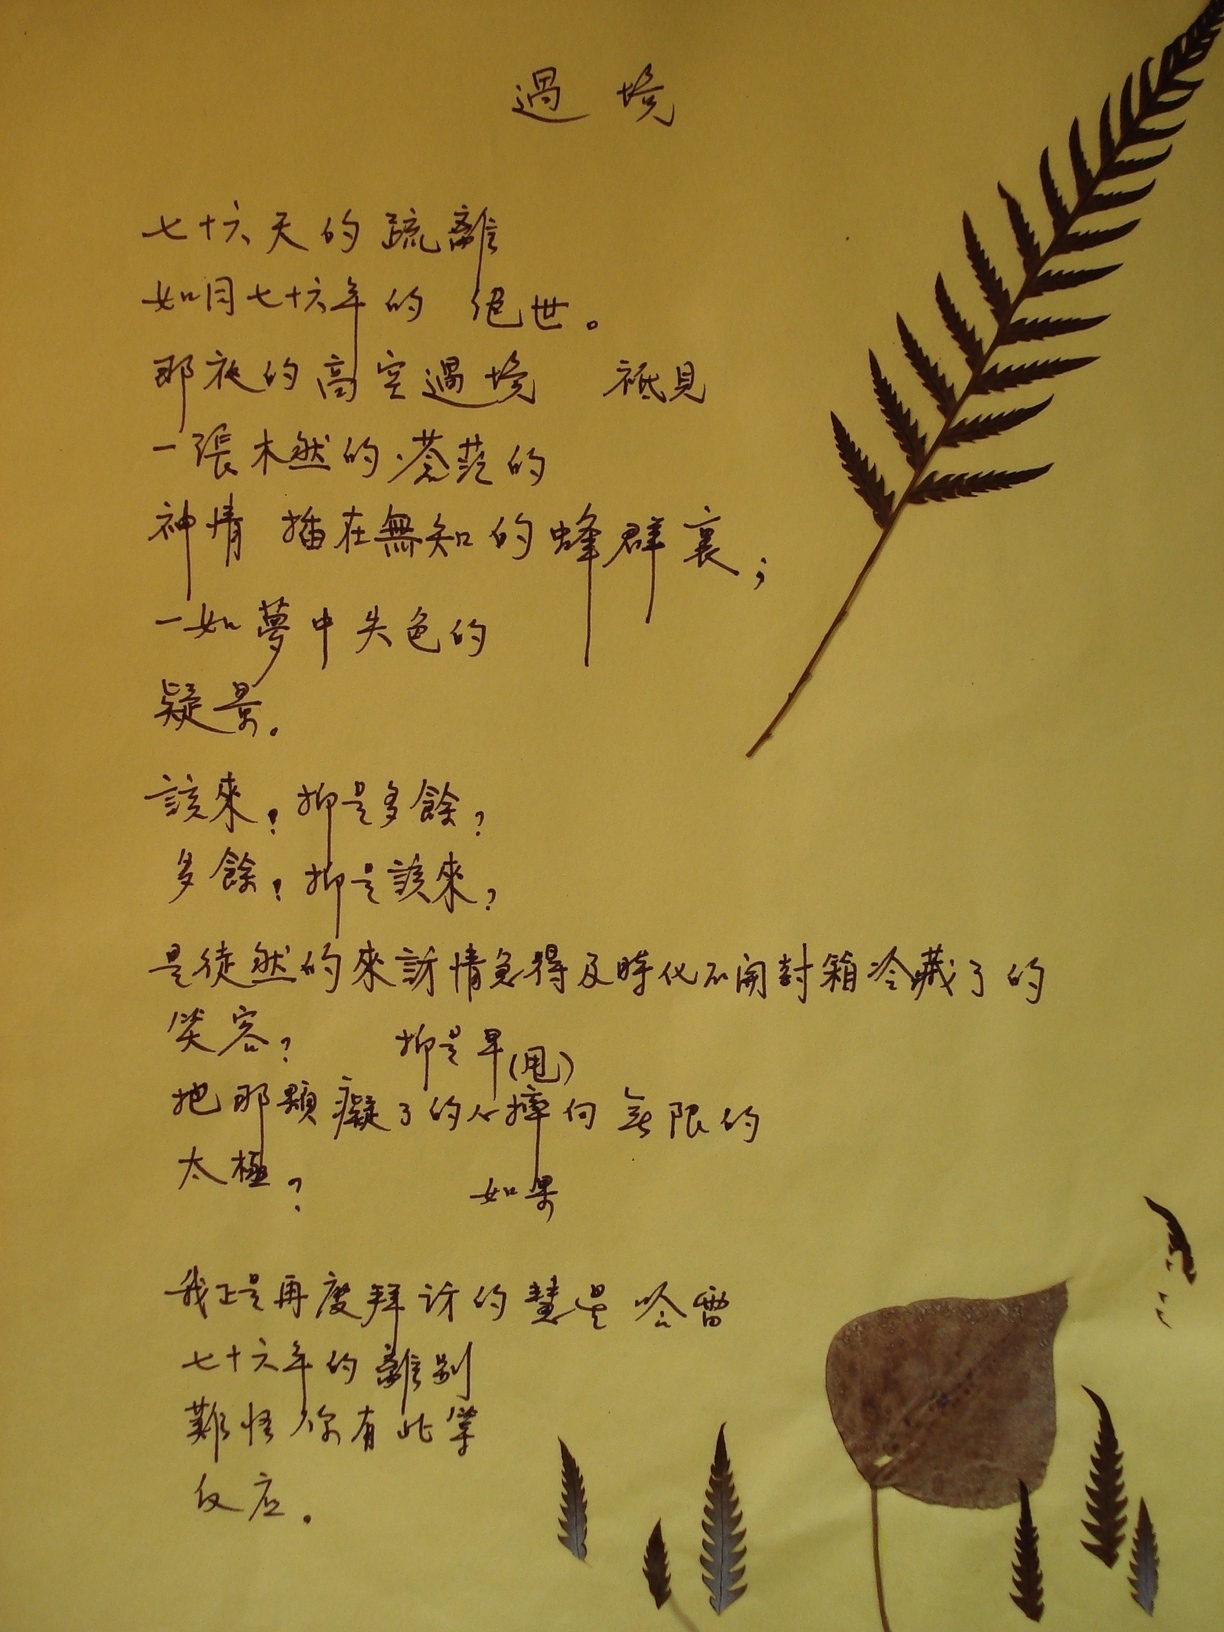 過境
七十六天的疏離
如同七十六年的 絕世。
那夜的高空過境 祗見
一張木然的蒼茫的
神情 插在無知的蜂群裏；
一如夢中失色的
疑景。
該來？抑是多餘？
多餘？抑是該來？
是徒然的來訪情急得及時化不開封箱冷藏了的
笑容？ 抑是早(甩)
把那顆癡了的心摔向無限的
太極？ 如果
我正是再度拜訪的慧星哈雷
七十六年的離別
難怪你有此掌
反应。